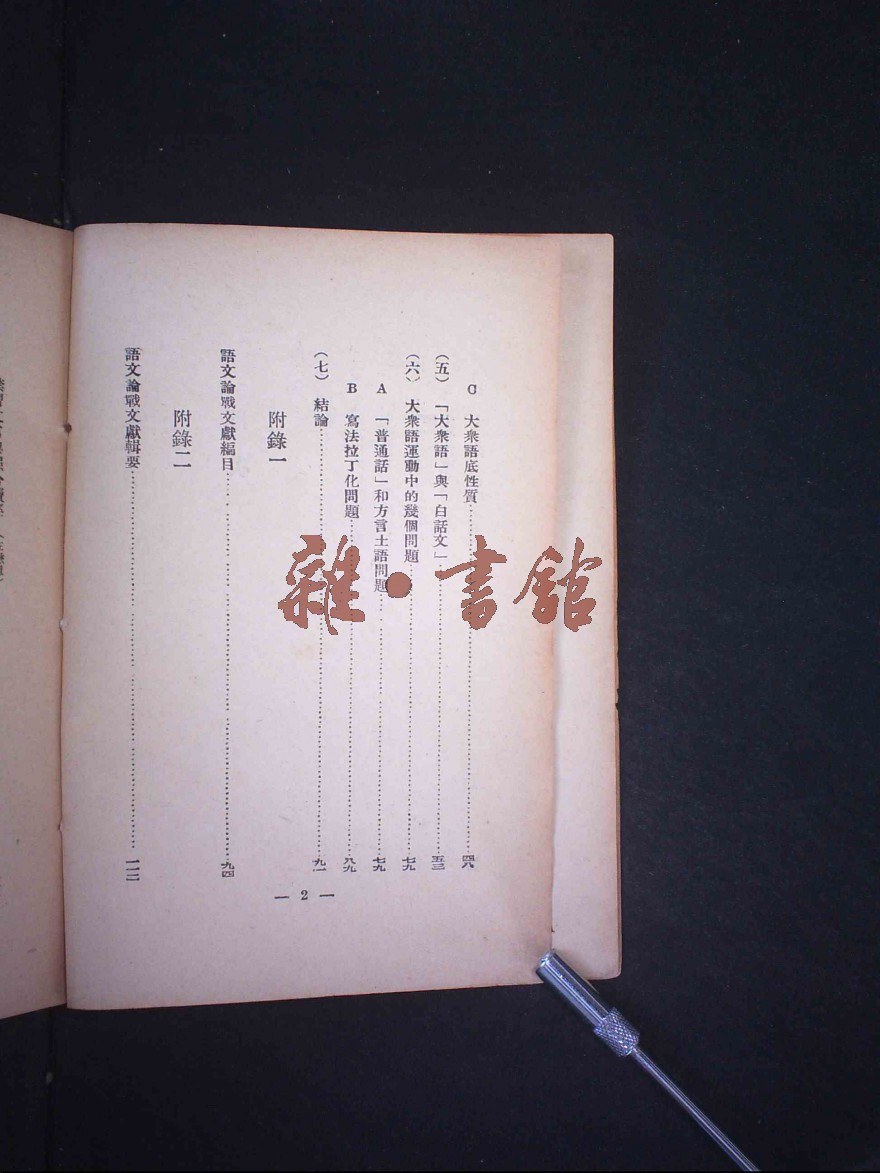 C 大衆語底性質……四八
(五) 「大衆語」與「白話文」……五三
(六) 大衆語運動中的幾個問題……七九
A 「普通話」和方言土語問題……七九
B 寫法拉丁化問題……八九
(七) 結論……九一
附錄一
語文論戰文獻編目……九四
附錄二
語文論戰文獻輯要……
— 2 —
雜·書館